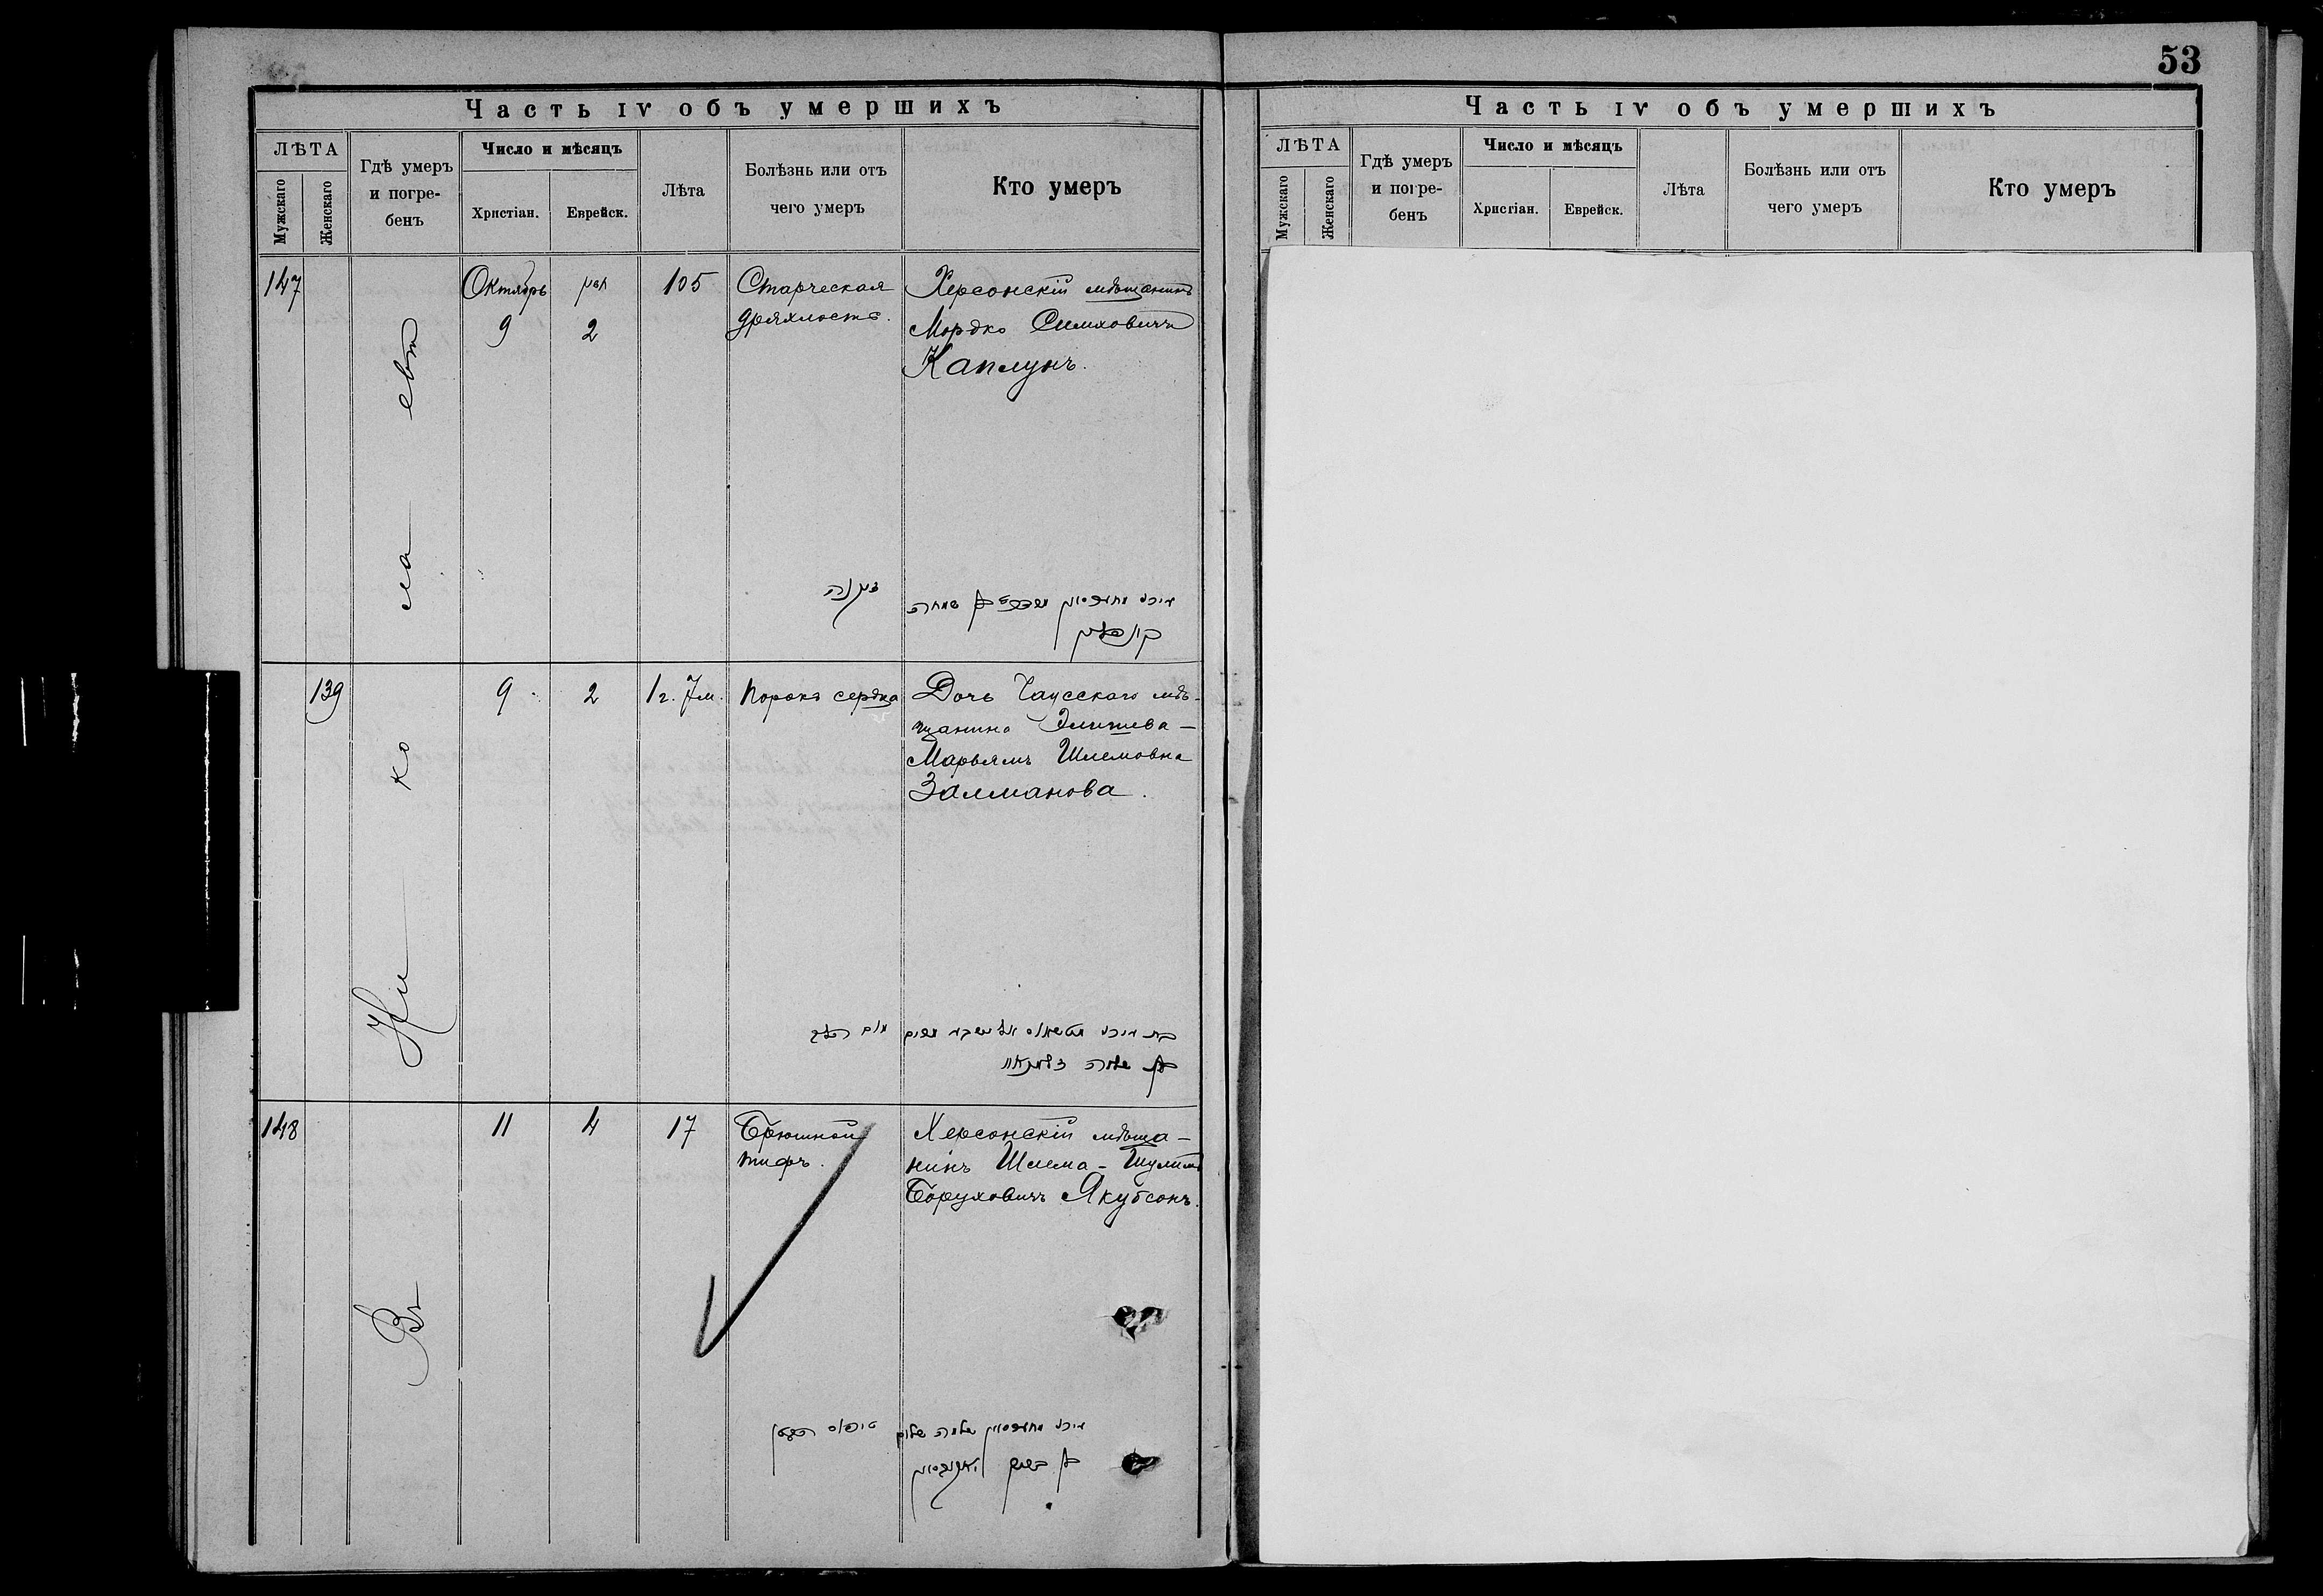 53
Часть IV объ умершихъ
ЛѢТА
Мужскаго
Женскаго
Гдѣ умеръ
и погре-
бенъ
Число и мѣсяцъ
Христіан.
Еврейск.
Лѣта
Болѣзнь или отъ
чего умеръ
Кто умеръ
147
Октябрь
9
2
105
Старческая
дряхлость.
Херсонскій мѣщанинъ
Мордко Симховичъ
Каплунъ.
זקנה
שמחה
139
9
2
1 г. 7 м.
Порокъ сердца
Дочь Чаусскаго мѣ-
щанина Элишева-
Марьямъ Шлемовна
Залманова.
מום הלב
שלמה
148
11
4
17
Брюшной
тифъ.
Херсонскій мѣща-
нинъ Шлема-Шулимъ
Боруховичъ Якубсонъ.
שלמה שלום
Въ Николаевѣ
Часть IV объ умершихъ
ЛѢТА
Мужскаго
Женскаго
Гдѣ умеръ
и погре-
бенъ
Число и мѣсяцъ
Христіан.
Еврейск.
Лѣта
Болѣзнь или отъ
чего умеръ
Кто умеръ